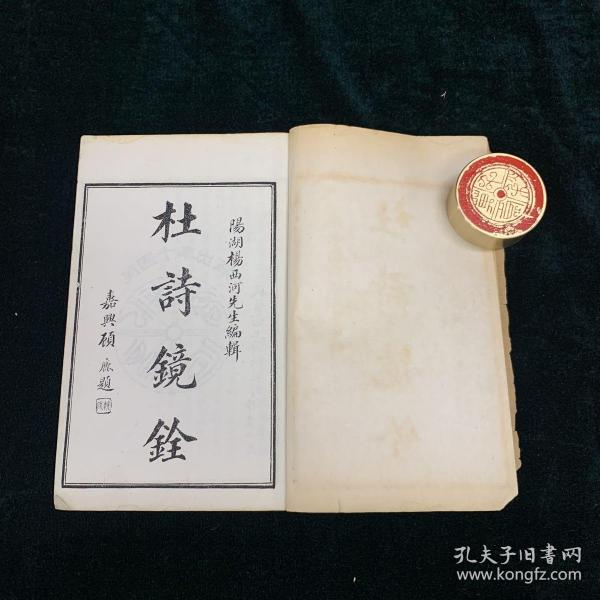 陽湖楊西河先生編輯
杜詩鏡銓
嘉興顧
題
孔夫子旧书网
www.kongfz.com